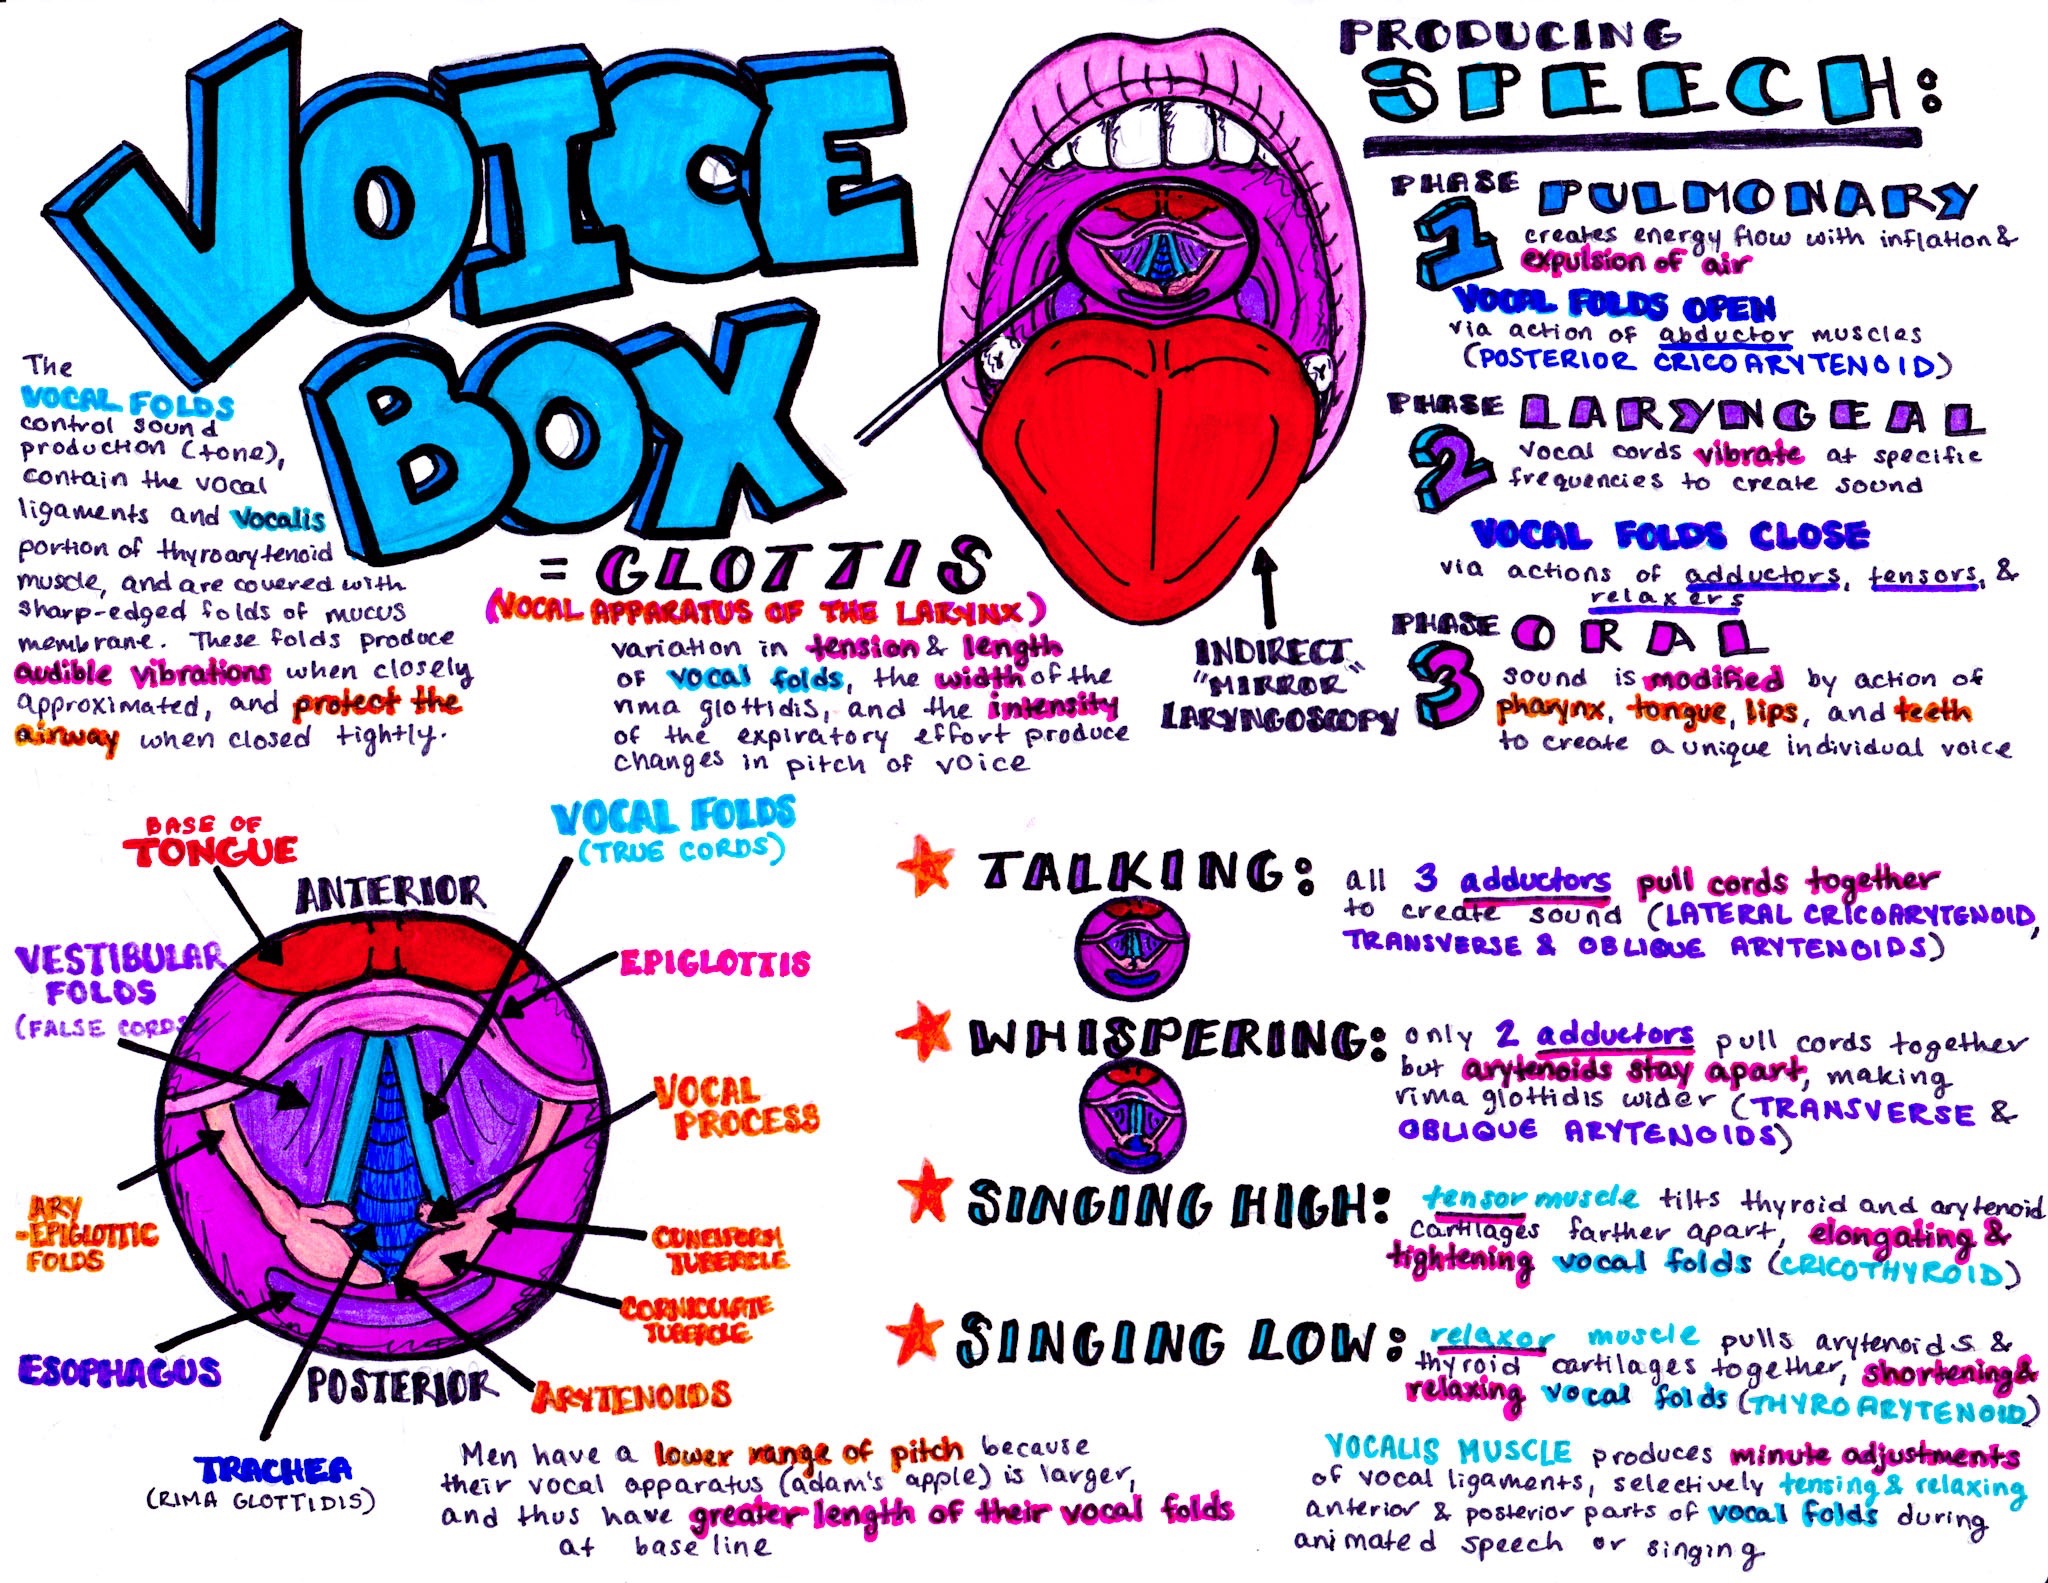 VOICE
BOX
The
VOCAL FOLDS
control sound
production (tone),
contain the vocal
ligaments and vocalis
portion of thyroarytenoid
muscle, and are covered with
sharp-edged folds of mucus
membrane. These folds produce
audible vibrations when closely
approximated, and protect the
airway when closed tightly.
= GLOTTIS
(VOCAL APPARATUS OF THE LARYNX)
variation in tension & length
of vocal folds, the width of the
rima glottidis, and the intensity
of the expiratory effort produce
changes in pitch of voice
INDIRECT
"MIRROR"
LARYNGOSCOPY
PRODUCING
SPEECH:
PHASE
1
PULMONARY
creates energy flow with inflation &
expulsion of air
VOCAL FOLDS OPEN
via action of abductor muscles
(POSTERIOR CRICOARYTENOID)
PHASE
2
LARYNGEAL
vocal cords vibrate at specific
frequencies to create sound
VOCAL FOLDS CLOSE
via actions of adductors, tensors, &
relaxers
PHASE
3
ORAL
sound is modified by action of
pharynx, tongue, lips, and teeth
to create a unique individual voice
BASE OF
TONGUE
VOCAL FOLDS
(TRUE CORDS)
ANTERIOR
VESTIBULAR
FOLDS
(FALSE CORDS
EPIGLOTTIS
VOCAL
PROCESS
ARY
-EPIGLOTTIC
FOLDS
CUNEIFORM
TUBERCLE
CORNICULATE
TUBERCLE
ESOPHAGUS
POSTERIOR
ARYTENOIDS
TRACHEA
(RIMA GLOTTIDIS)
Men have a lower range of pitch because
their vocal apparatus (adam's apple) is larger,
and thus have greater length of their vocal folds
at baseline
TALKING:
all 3 adductors pull cords together
to create sound (LATERAL CRICOARYTENOID,
TRANSVERSE & OBLIQUE ARYTENOIDS)
WHISPERING:
only 2 adductors pull cords together
but arytenoids stay apart, making
rima glottidis wider (TRANSVERSE &
OBLIQUE ARYTENOIDS)
SINGING HIGH:
tensor muscle tilts thyroid and arytenoid
cartilages farther apart, elongating &
tightening vocal folds (CRICOTHYROID)
SINGING LOW:
relaxor muscle pulls arytenoids &
thyroid cartilages together, shortening &
relaxing vocal folds (THYROARYTENOID)
VOCALIS MUSCLE produces minute adjustments
of vocal ligaments, selectively tensing & relaxing
anterior & posterior parts of vocal folds during
animated speech or singing